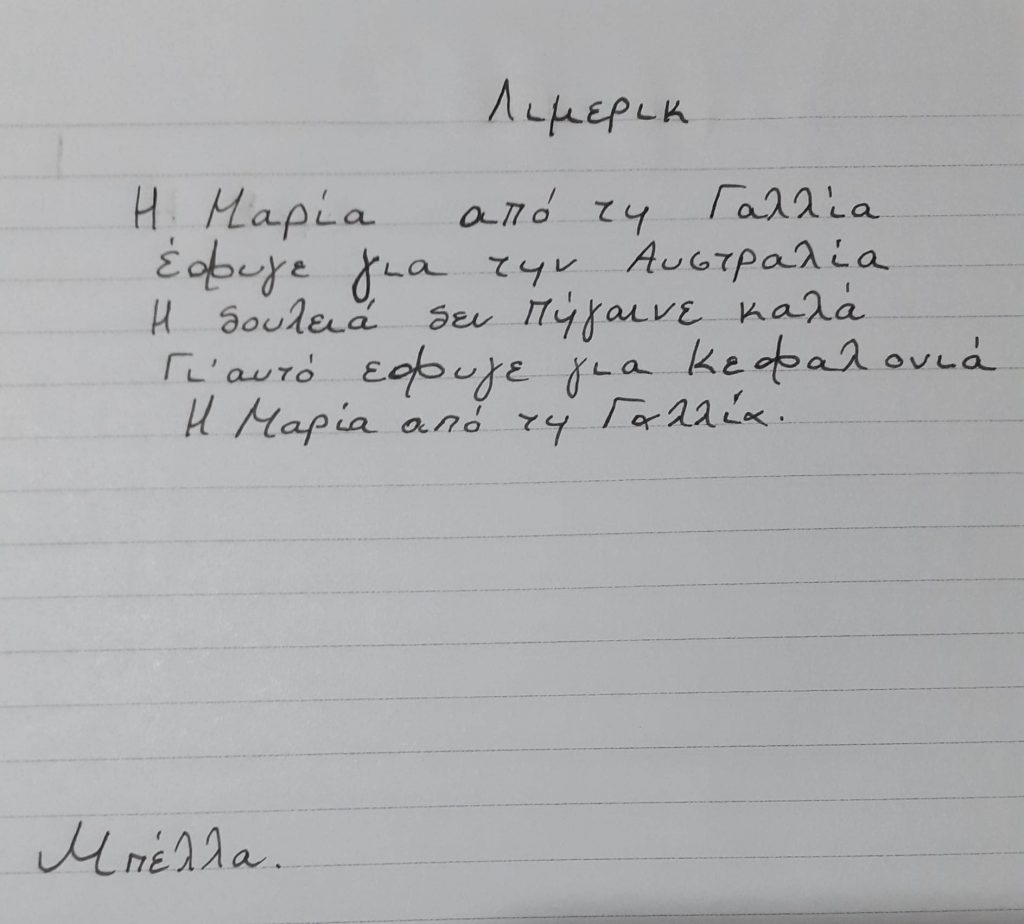 Λιμερικ
Η Μαρία από τη Γαλλία
έφυγε για την Αυστραλία
Η δουλειά δεν πήγαινε καλά
Γι'αυτό εφυγε για Κεφαλονιά
Η Μαρία από τη Γαλλία.
Μπέλλα.